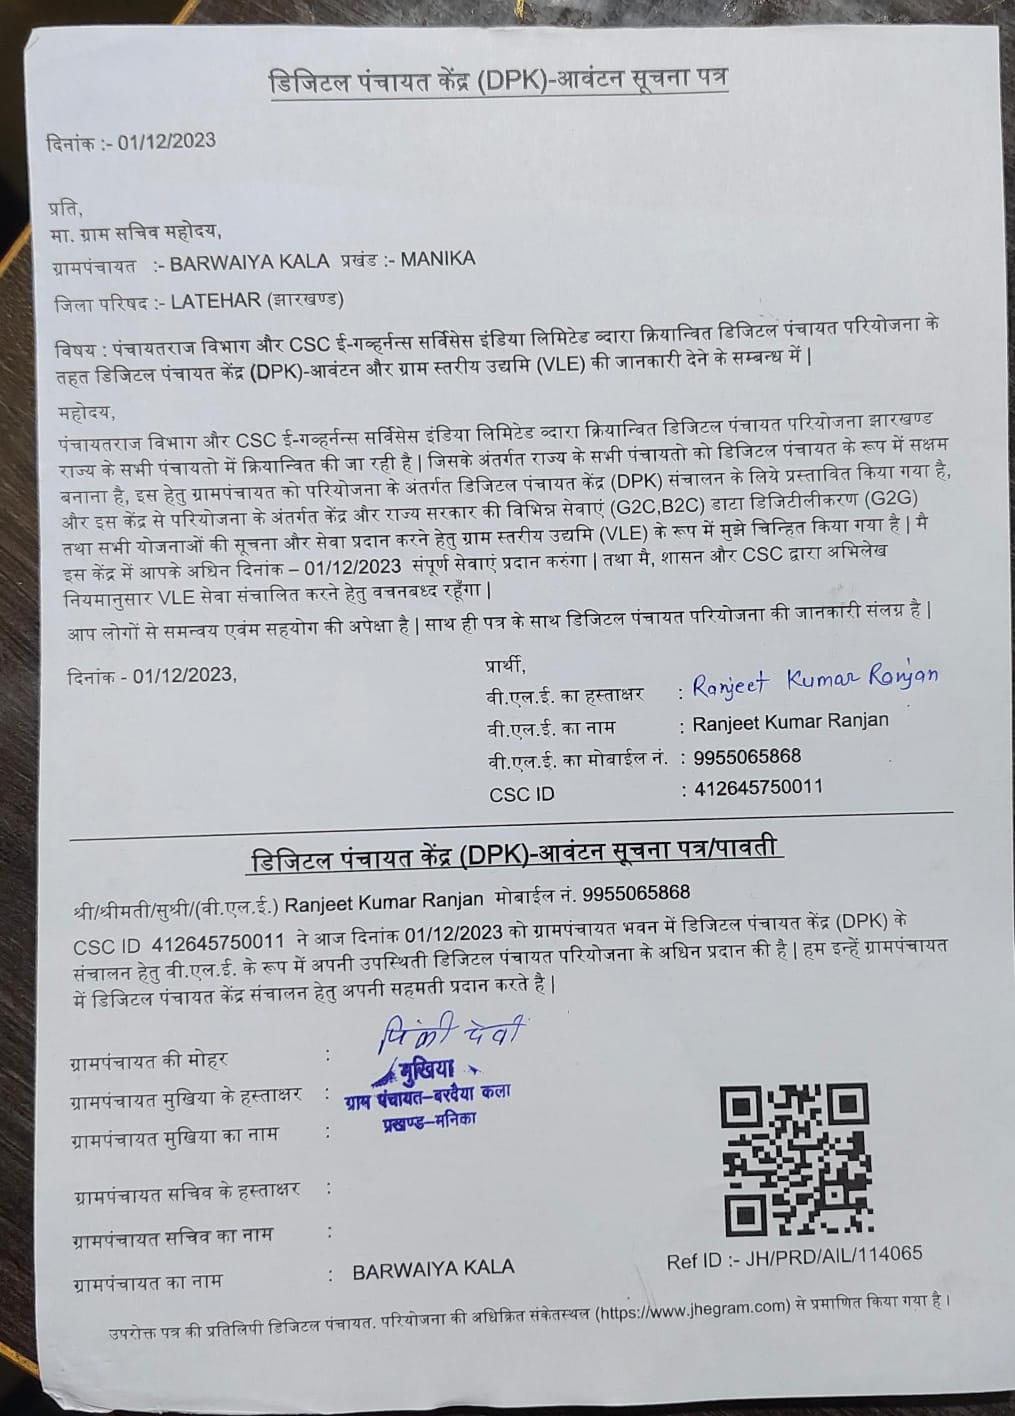 डिजिटल पंचायत केंद्र (DPK)-आवंटन सूचना पत्र
दिनांक :- 01/12/2023
प्रति,
मा. ग्राम सचिव महोदय,
ग्रामपंचायत :- BARWAIYA KALA प्रखंड :- MANIKA
जिला परिषद :- LATEHAR (झारखण्ड)
विषय : पंचायतराज विभाग और CSC ई-गव्हर्नन्स सर्विसेस इंडिया लिमिटेड व्दारा क्रियान्वित डिजिटल पंचायत परियोजना के
तहत डिजिटल पंचायत केंद्र (DPK)-आवंटन और ग्राम स्तरीय उद्यमि (VLE) की जानकारी देने के सम्बन्ध में |
महोदय,
पंचायतराज विभाग और CSC ई-गव्हर्नन्स सर्विसेस इंडिया लिमिटेड व्दारा क्रियान्वित डिजिटल पंचायत परियोजना झारखण्ड
राज्य के सभी पंचायतो में क्रियान्वित की जा रही है | जिसके अंतर्गत राज्य के सभी पंचायतो को डिजिटल पंचायत के रूप में सक्षम
बनाना है, इस हेतु ग्रामपंचायत को परियोजना के अंतर्गत डिजिटल पंचायत केंद्र (DPK) संचालन के लिये प्रस्तावित किया गया है,
और इस केंद्र से परियोजना के अंतर्गत केंद्र और राज्य सरकार की विभिन्न सेवाएं (G2C,B2C) डाटा डिजिटीलीकरण (G2G)
तथा सभी योजनाओं की सूचना और सेवा प्रदान करने हेतु ग्राम स्तरीय उद्यमि (VLE) के रूप में मुझे चिन्हित किया गया है | मै
इस केंद्र में आपके अधिन दिनांक – 01/12/2023 संपूर्ण सेवाएं प्रदान करुंगा | तथा मै, शासन और CSC द्वारा अभिलेख
नियमानुसार VLE सेवा संचालित करने हेतु वचनबध्द रहूँगा |
आप लोगों से समन्वय एवंम सहयोग की अपेक्षा है | साथ ही पत्र के साथ डिजिटल पंचायत परियोजना की जानकारी संलग्न है |
दिनांक - 01/12/2023,
प्रार्थी,
वी.एल.ई. का हस्ताक्षर : Ranjeet Kumar Ranjan
वी.एल.ई. का नाम : Ranjeet Kumar Ranjan
वी.एल.ई. का मोबाईल नं. : 9955065868
CSC ID : 412645750011
डिजिटल पंचायत केंद्र (DPK)-आवंटन सूचना पत्र/पावती
श्री/श्रीमती/सुश्री/(वी.एल.ई.) Ranjeet Kumar Ranjan मोबाईल नं. 9955065868
CSC ID 412645750011 ने आज दिनांक 01/12/2023 को ग्रामपंचायत भवन में डिजिटल पंचायत केंद्र (DPK) के
संचालन हेतु वी.एल.ई. के रूप में अपनी उपस्थिती डिजिटल पंचायत परियोजना के अधिन प्रदान की है | हम इन्हें ग्रामपंचायत
में डिजिटल पंचायत केंद्र संचालन हेतु अपनी सहमती प्रदान करते है |
पिंकी देवी
ग्रामपंचायत की मोहर :
मुखिया
ग्रामपंचायत मुखिया के हस्ताक्षर : ग्राम पंचायत-बरवैया कला
प्रखण्ड-मनिका
ग्रामपंचायत मुखिया का नाम :
ग्रामपंचायत सचिव के हस्ताक्षर :
ग्रामपंचायत सचिव का नाम :
ग्रामपंचायत का नाम : BARWAIYA KALA
Ref ID :- JH/PRD/AIL/114065
उपरोक्त पत्र की प्रतिलिपी डिजिटल पंचायत. परियोजना की अधिक्रित संकेतस्थल (https://www.jhegram.com) से प्रमाणित किया गया है |